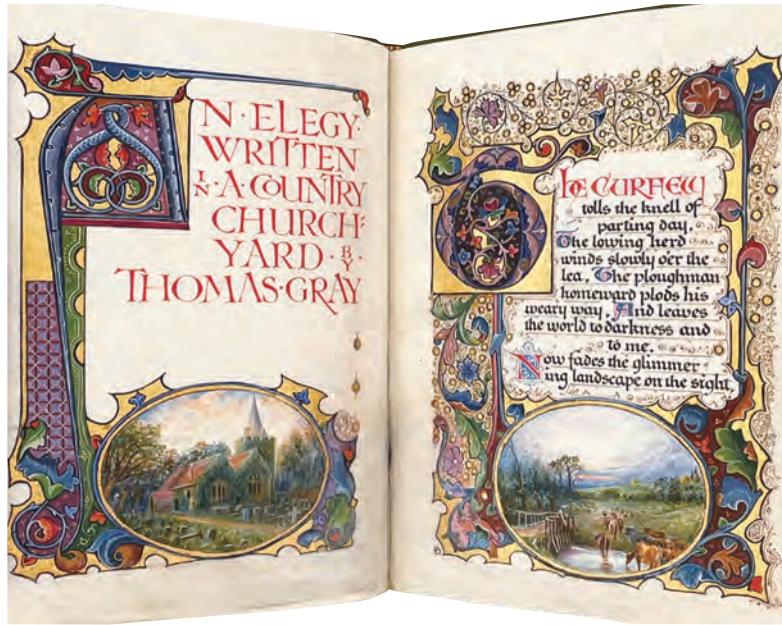 AN·ELEGY·
WRITTEN
IN·A·COUNTRY
CHURCH:
YARD·BY
THOMAS·GRAY
The CURFEW
tolls the knell of
parting day.
The lowing herd
winds slowly o'er the
lea. The ploughman
homeward plods his
weary way. And leaves
the world to darkness and
to me.
Now fades the glimmer
ing landscape on the sight,